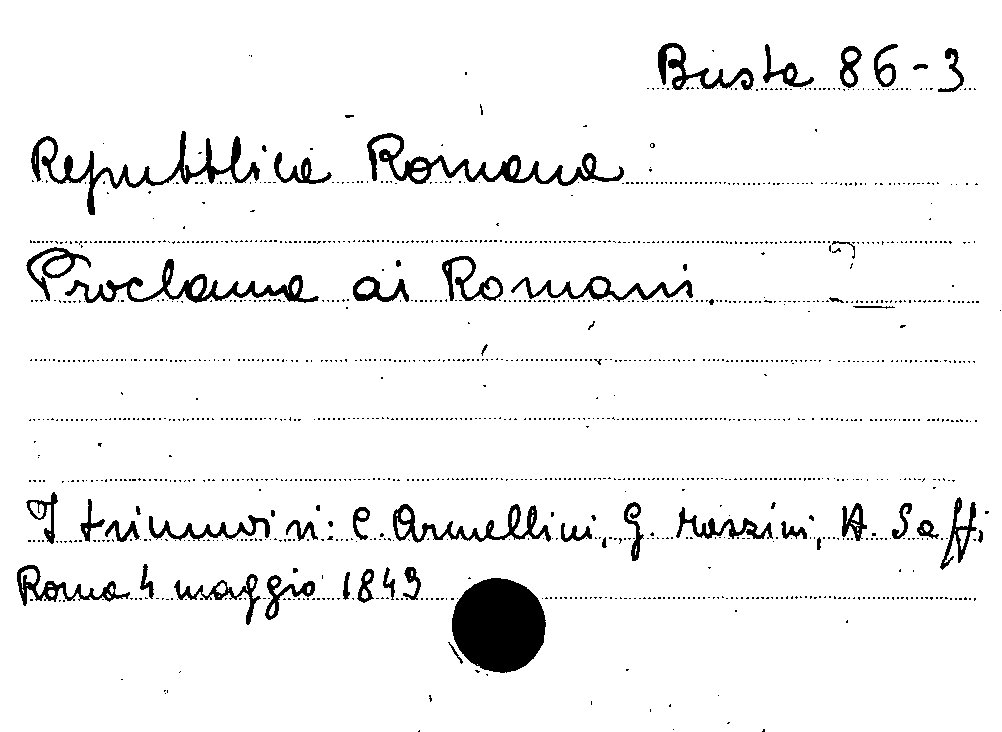 Busta 86-3
Repubblica Romana
Proclama ai Romani.
I triumviri: C. Armellini, G. Mazzini, A. Saffi
Roma 4 maggio 1849